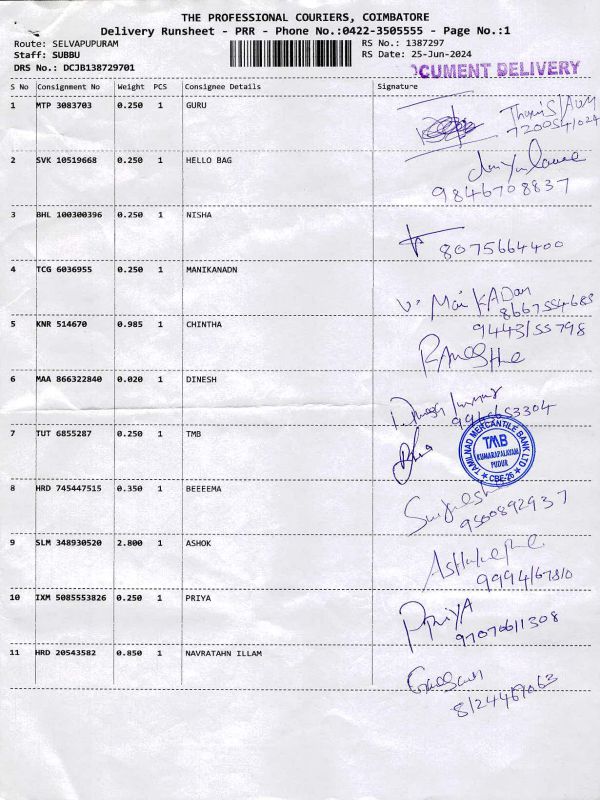 THE PROFESSIONAL COURIERS, COIMBATORE
Delivery Runsheet - PRR - Phone No.:0422-3505555 - Page No.:1
Route: SELVAPUPURAM RS No.: 1387297
Staff: SUBBU RS Date: 25-Jun-2024
DRS No.: DCJB138729701
CUMENT DELIVERY
S No Consignment No Weight PCS Consignee Details Signature
1 MTP 3083703 0.250 1 GURU
2 SVK 10519668 0.250 1 HELLO BAG
9846708837
3 BHL 100300396 0.250 1 NISHA
8075664400
4 TCG 6036955 0.250 1 MANIKANADN
V. ManiKADan
8667554683
5 KNR 514670 0.985 1 CHINTHA
9443155798
6 MAA 866322840 0.020 1 DINESH
Dinesh Kumar
7 TUT 6855287 0.250 1 TMB
TAMILNAD MERCANTILE BANK LTD
TMB
KUMARAPALAYAM
PUDUR
CBE-26
8 HRD 745447515 0.350 1 BEEEEMA
9500892937
9 SLM 348930520 2.800 1 ASHOK
9994167810
10 IXM 5085553826 0.250 1 PRIYA
PRIYA
97070611308
11 HRD 20543582 0.850 1 NAVRATAHN ILLAM